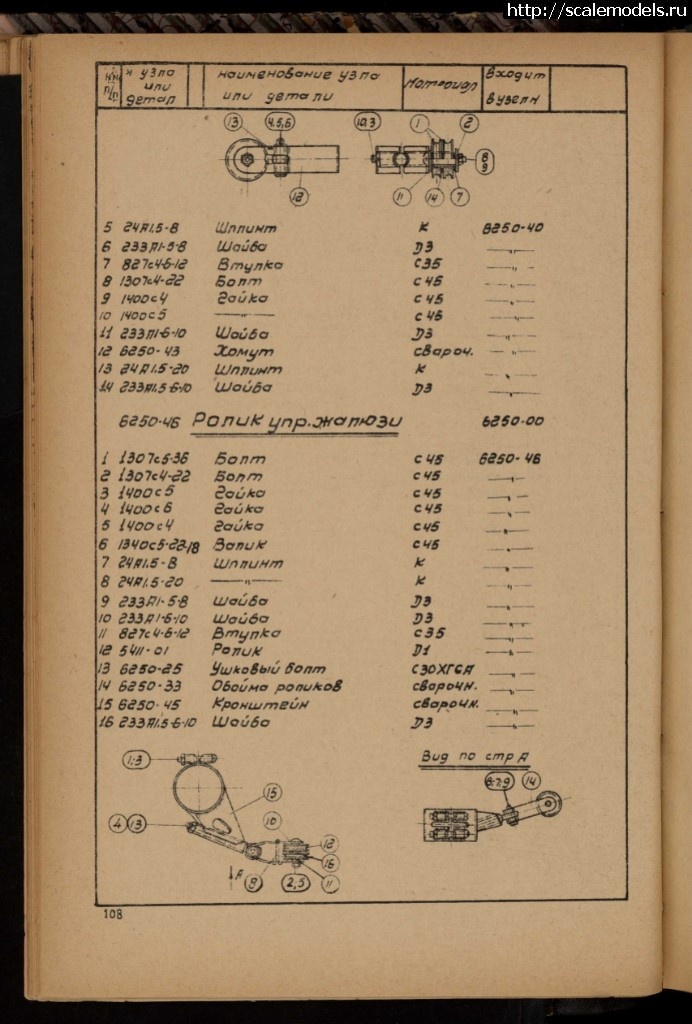 http://scalemodels.ru
NN п/п № узла или детал наименование узла или детали Материал входит в узел N
13 4.5,6 10.3 1 2
8
9
12 11 14 7
5 24А1.5-8 Шплинт К 6250-40
6 233А1-5-8 Шайба Д3 -"-
7 827с4-6-12 Втулка С35 -"-
8 1307с4-22 Болт с45 -"-
9 1400с4 Гайка с45 -"-
10 1400с5 -"- с45 -"-
11 233А1-6-10 Шайба Д3 -"-
12 6250-43 Хомут свароч. -"-
13 24А1.5-20 Шплинт К -"-
14 233А1.5-6-10 Шайба Д3 -"-
6250-46 Ролик упр.жалюзи 6250-00
1 1307с5-36 Болт с45 6250-46
2 1307с4-22 Болт с45 -"-
3 1400с5 Гайка с45 -"-
4 1400с6 Гайка с45 -"-
5 1400с4 Гайка с45 -"-
6 1340с5-22-18 Валик с45 -"-
7 24А1.5-8 Шплинт К -"-
8 24А1.5-20 -"- К -"-
9 233А1-5-8 Шайба Д3 -"-
10 233А1-6-10 Шайба Д3 -"-
11 827с4-6-12 Втулка с35 -"-
12 5411-01 Ролик Д1 -"-
13 6250-25 Ушковый болт С30ХГСА -"-
14 6250-33 Обойма роликов сварочн. -"-
15 6250-45 Кронштейн сварочн. -"-
16 233А1.5-6-10 Шайба Д3 -"-
Вид по стр А
1;3 15
4 13 10 12
16
А 9 2,5 11
14
108